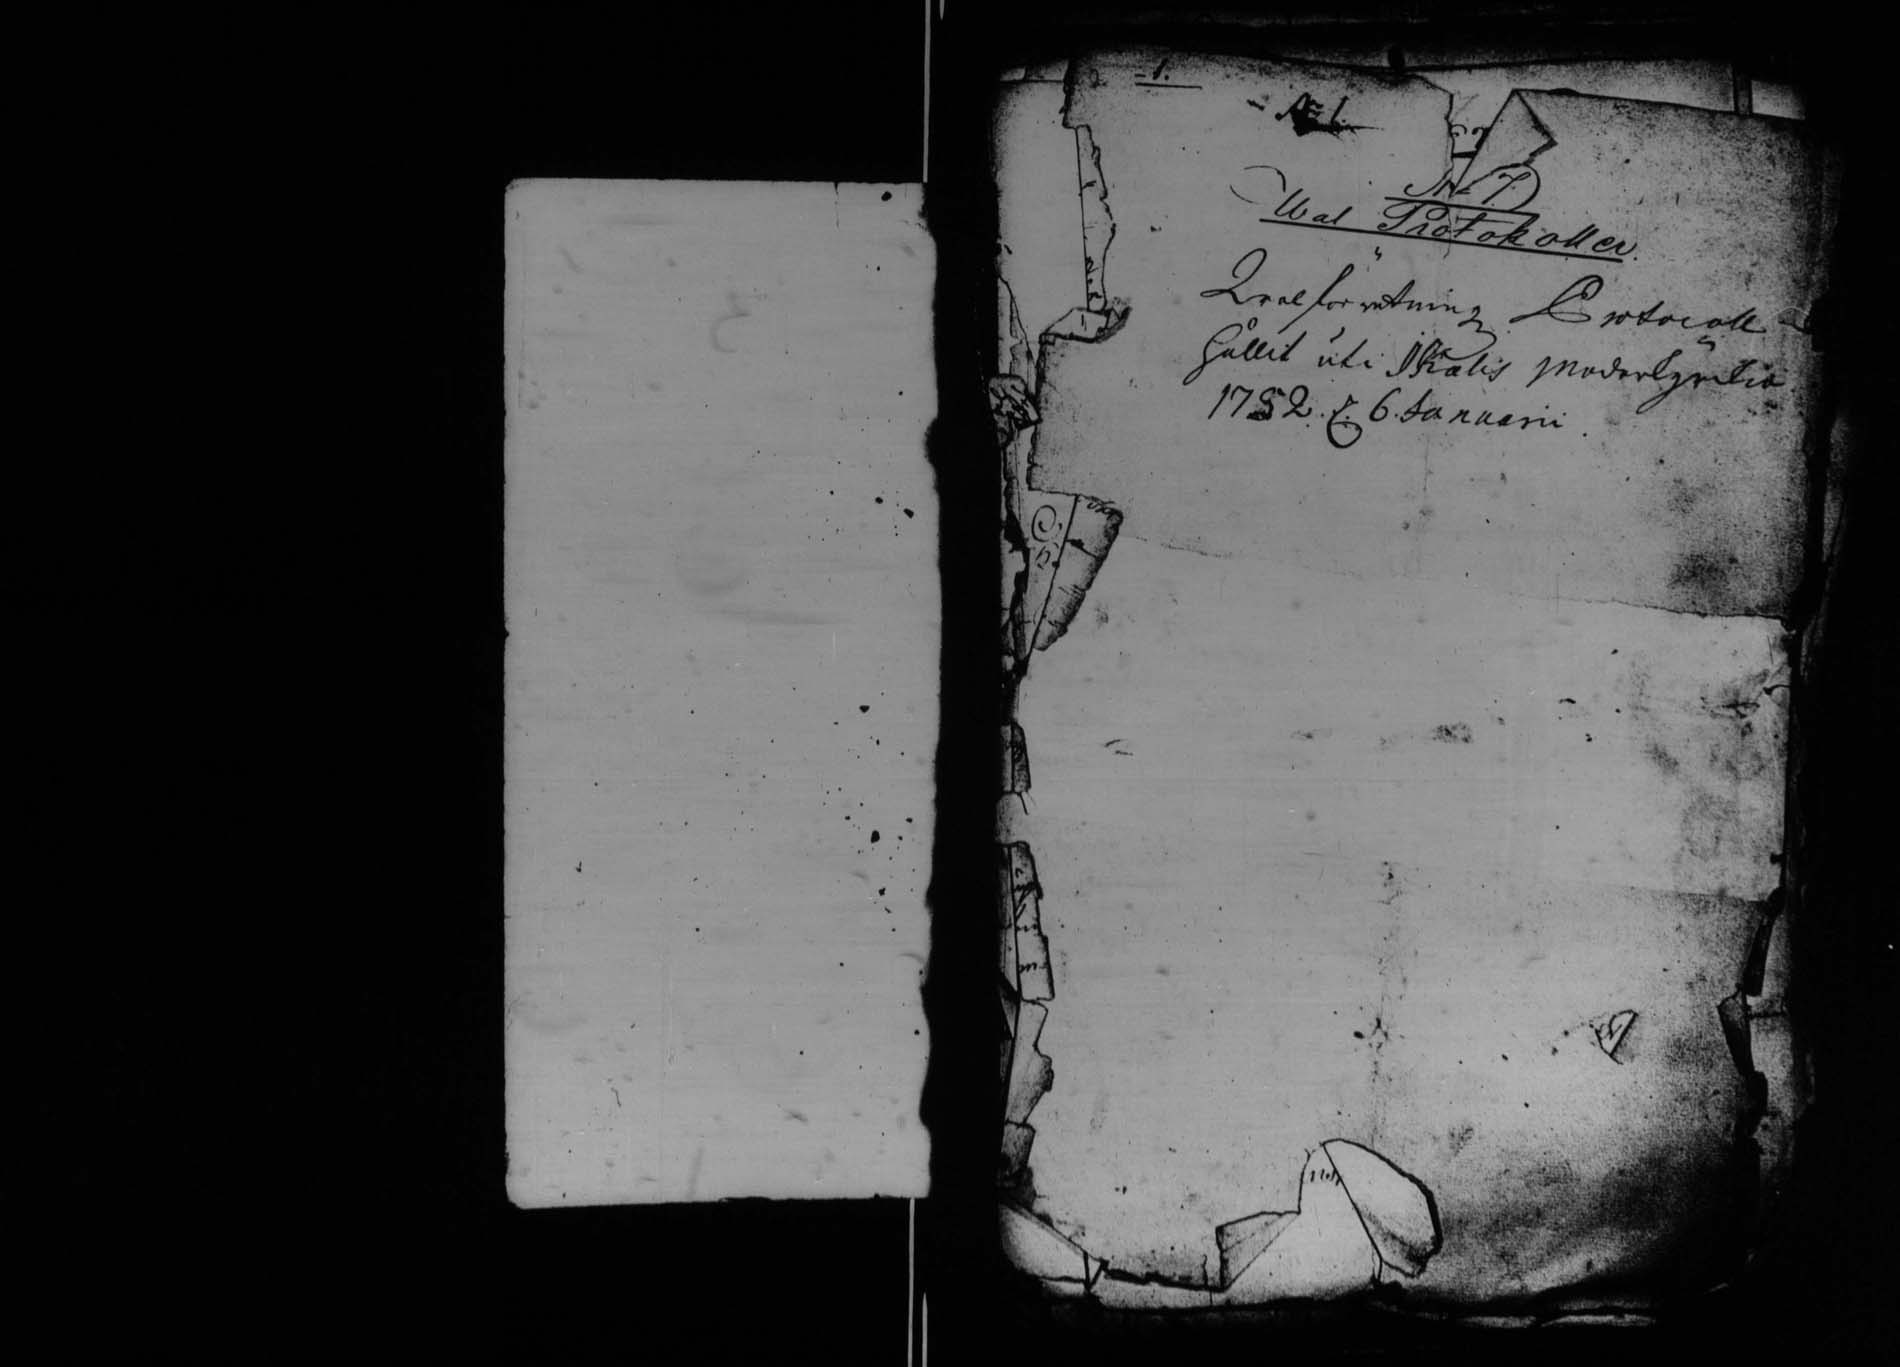 1.
№ 1.
№ 7.
Wal Protokoller.
Qvalförrettning Protocoll
hållit uti Ikalis Moderkyrkia
1752. d. 6. Januarii.